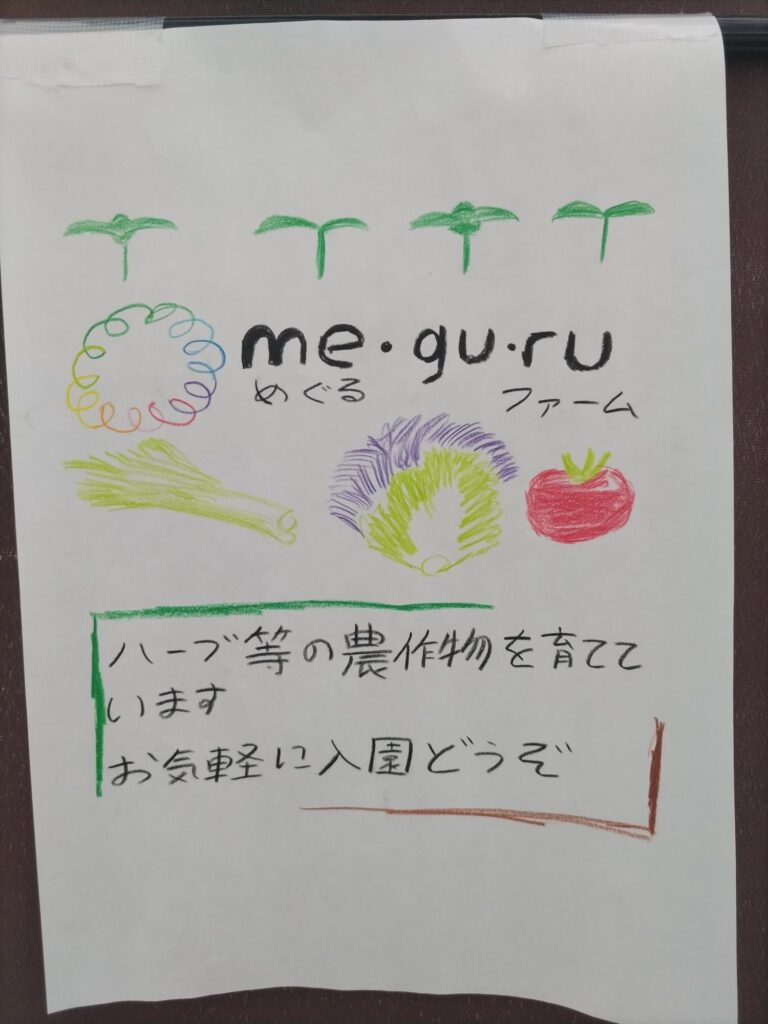 me・gu・ru
めぐる ファーム
ハーブ等の農作物を育てて
います
お気軽に入園どうぞ